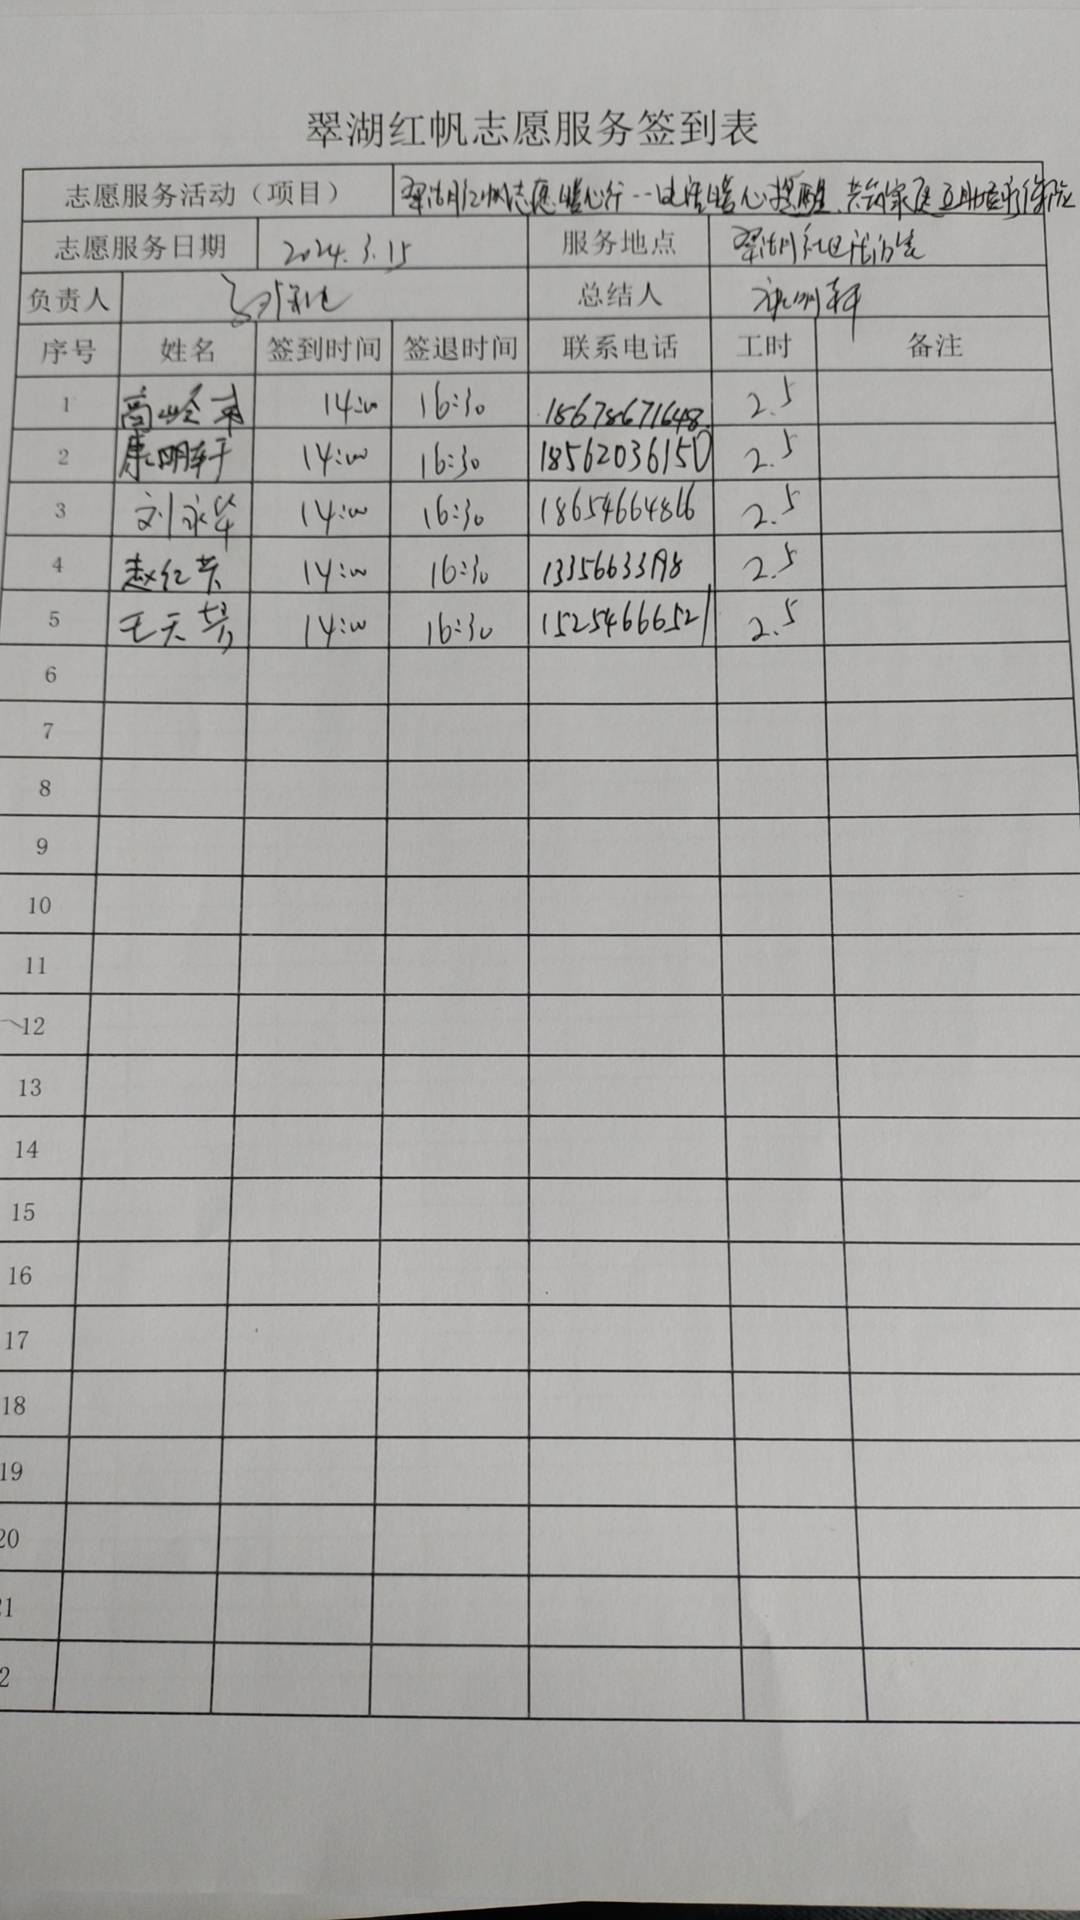 翠湖红帆志愿服务签到表
志愿服务活动（项目） 翠湖红帆志愿暖心行--生活暖心提醒、共筑家庭互助医疗保险
志愿服务日期 2024.3.15 服务地点 翠湖社区活动室
负责人 总结人
序号 姓名 签到时间 签退时间 联系电话 工时 备注
1 14:00 16:30 18678671648 2.5
2 康明轩 14:00 16:30 18562036150 2.5
3 刘永华 14:00 16:30 18654664816 2.5
4 赵红芳 14:00 16:30 2.5
5 王天 14:00 16:30 15254666521 2.5
6
7
8
9
10
11
12
13
14
15
16
17
18
19
20
21
2